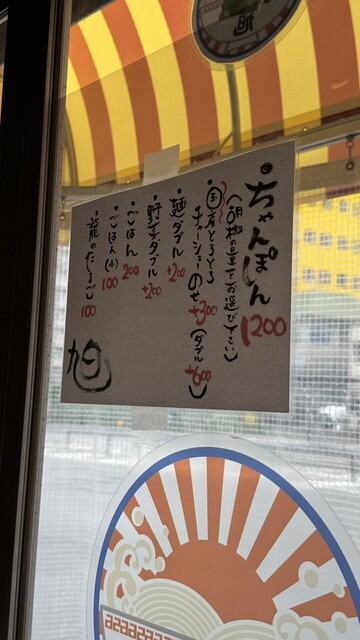 ・ちゃんぽん 1200
(胡椒の量でお選び下さい)
・国産とろとろ
チャーシューのせ +300 (ダブル +600)
・麺ダブル +200
・野チダブル +200
・ごはん 200
・ごはん(小) 100
・龍のたまご 100
旭